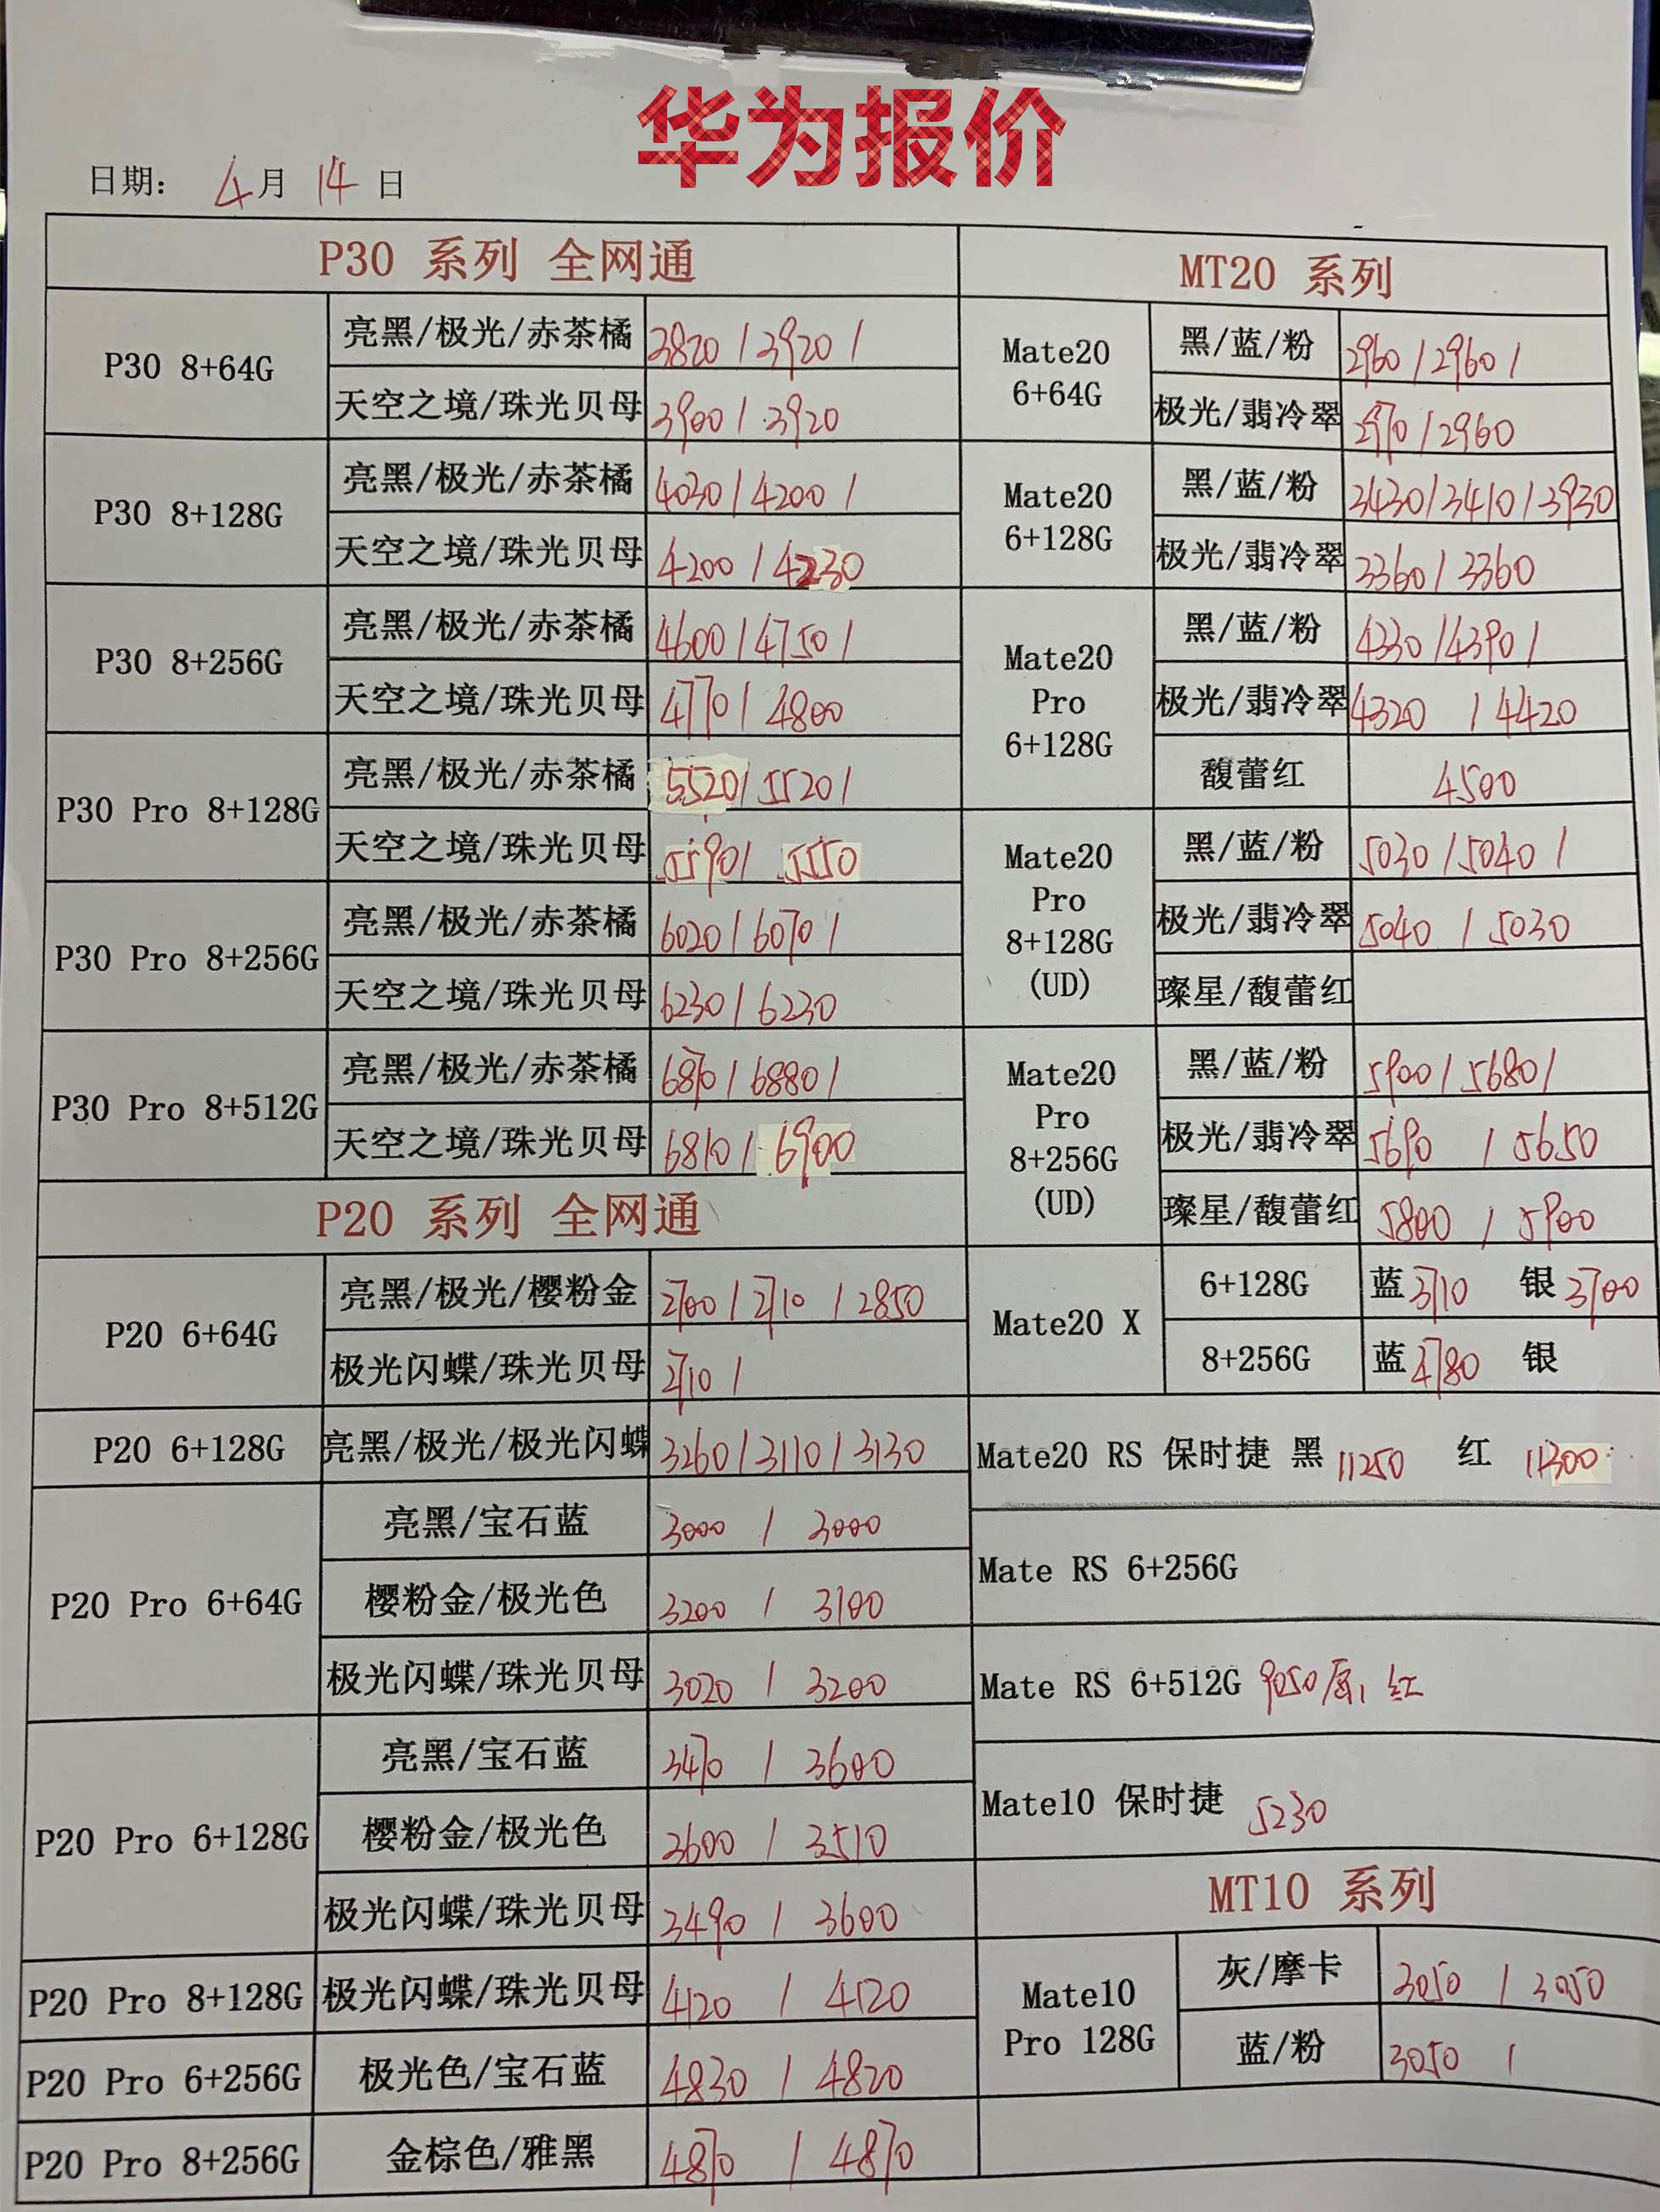 华为报价
日期: 4月 14 日
P30 系列 全网通
P30 8+64G
亮黑/极光/赤茶橘 3820 / 3920 /
天空之境/珠光贝母 3900 / 3920
P30 8+128G
亮黑/极光/赤茶橘 4030 / 4200 /
天空之境/珠光贝母 4200 / 4230
P30 8+256G
亮黑/极光/赤茶橘 4600 / 4750 /
天空之境/珠光贝母 4770 / 4800
P30 Pro 8+128G
亮黑/极光/赤茶橘 5520 / 5520 /
天空之境/珠光贝母 5590 / 5550
P30 Pro 8+256G
亮黑/极光/赤茶橘 6020 / 6070 /
天空之境/珠光贝母 6230 / 6230
P30 Pro 8+512G
亮黑/极光/赤茶橘 6870 / 6880 /
天空之境/珠光贝母 6810 / 6900
P20 系列 全网通
P20 6+64G
亮黑/极光/樱粉金 2700 / 2710 / 2850
极光闪蝶/珠光贝母 2710 /
P20 6+128G
亮黑/极光/极光闪蝶 3260 / 3110 / 3130
P20 Pro 6+64G
亮黑/宝石蓝 3000 / 3000
樱粉金/极光色 3200 / 3100
极光闪蝶/珠光贝母 3020 / 3200
P20 Pro 6+128G
亮黑/宝石蓝 3470 / 3600
樱粉金/极光色 3600 / 3510
极光闪蝶/珠光贝母 3490 / 3600
P20 Pro 8+128G
极光闪蝶/珠光贝母 4120 / 4120
P20 Pro 6+256G
极光色/宝石蓝 4830 / 4820
P20 Pro 8+256G
金棕色/雅黑 4870 / 4870
MT20 系列
Mate20
6+64G
黑/蓝/粉 2960 / 2960 /
极光/翡冷翠 2970 / 2960
Mate20
6+128G
黑/蓝/粉 3430 / 3410 / 3930
极光/翡冷翠 3360 / 3360
Mate20
Pro
6+128G
黑/蓝/粉 4330 / 4390 /
极光/翡冷翠 4320 / 4420
馥蕾红 4500
Mate20
Pro
8+128G
(UD)
黑/蓝/粉 5030 / 5040 /
极光/翡冷翠 5040 / 5030
璨星/馥蕾红
Mate20
Pro
8+256G
(UD)
黑/蓝/粉 5900 / 5680 /
极光/翡冷翠 5690 / 5650
璨星/馥蕾红 5800 / 5900
Mate20 X
6+128G 蓝 3710 银 3700
8+256G 蓝 4780 银
Mate20 RS 保时捷 黑 11250 红 11300
Mate RS 6+256G
Mate RS 6+512G 9050 红
Mate10 保时捷 5230
MT10 系列
Mate10
Pro 128G
灰/摩卡 3050 / 3050
蓝/粉 3050 /